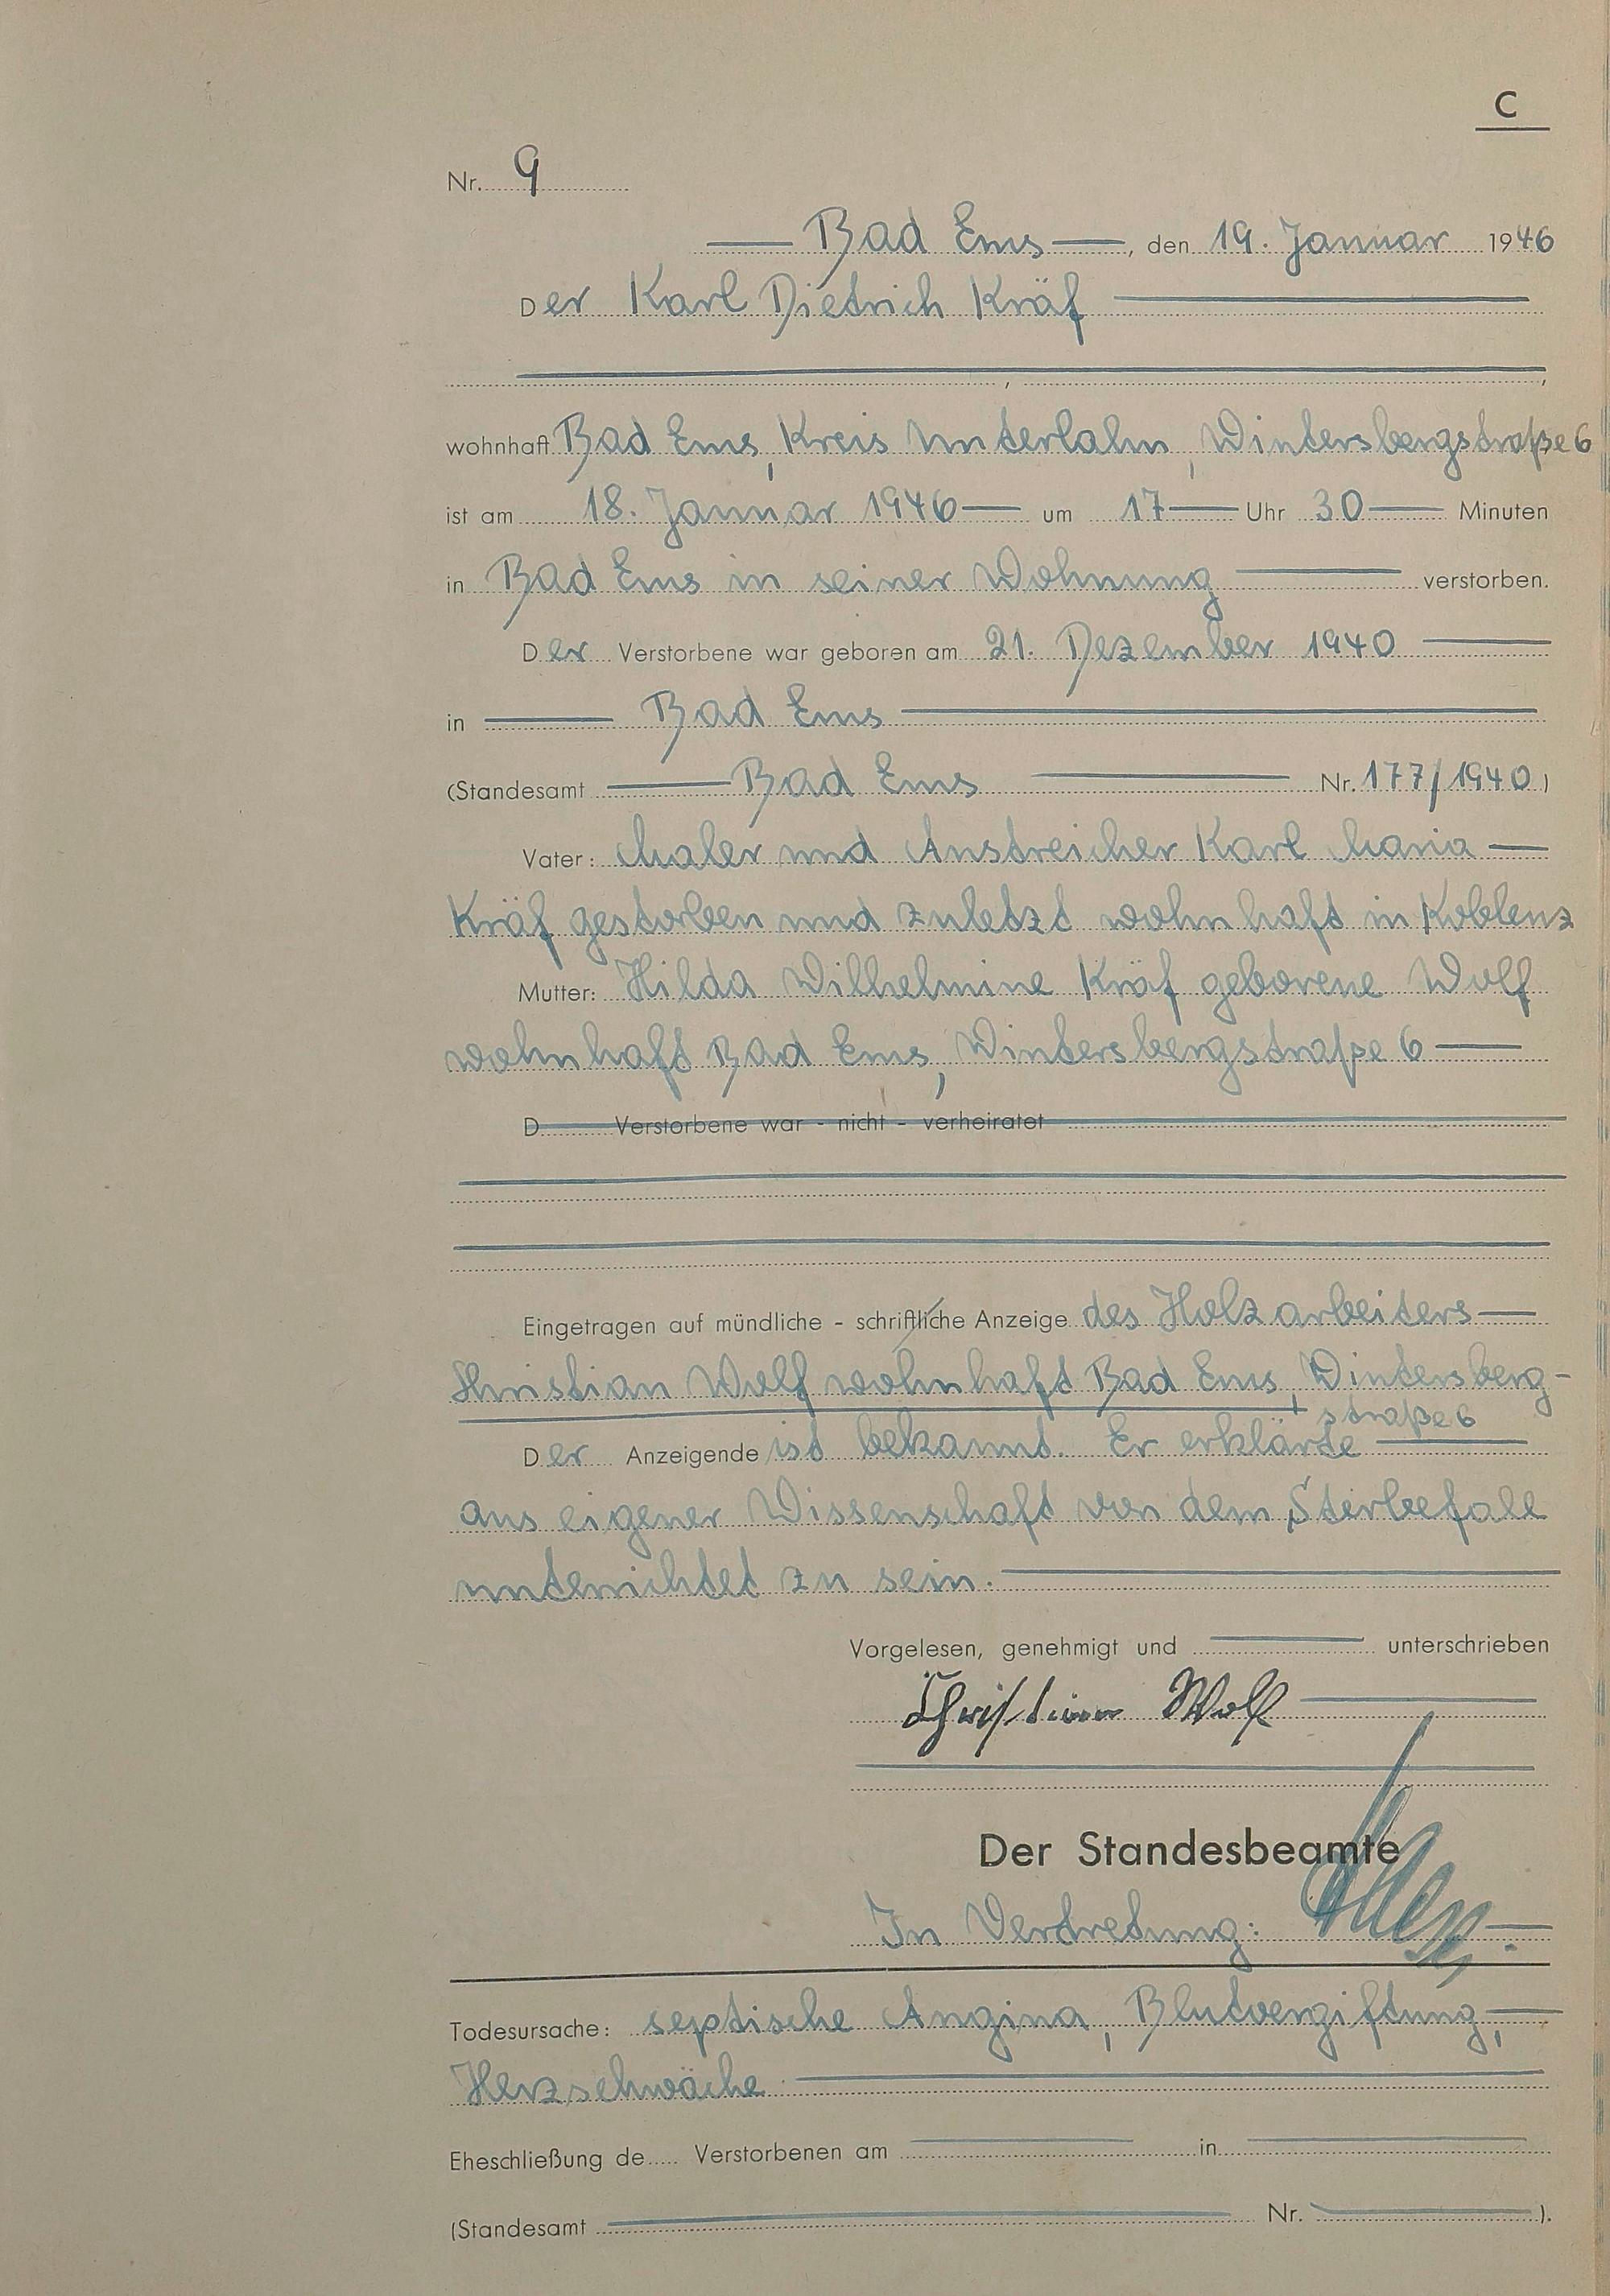 C
Nr. 9
Bad Ems, den 19. Januar 1946
Der Karl Diedrich Kräf
,
wohnhaft Bad Ems, Kreis Unterlahn, Wintersbergstraße 6
ist am 18. Januar 1946 um 17 Uhr 30 Minuten
in Bad Ems in seiner Wohnung verstorben.
Der Verstorbene war geboren am 21. Dezember 1940
in Bad Ems
(Standesamt Bad Ems Nr. 177/1940)
Vater: Maler und Anstreicher Karl Maria
Kräf gestorben und zuletzt wohnhaft in Koblenz
Mutter: Hilda Wilhelmine Kräf geborene Wolf
wohnhaft Bad Ems, Wintersbergstraße 6
D Verstorbene war - nicht - verheiratet
Eingetragen auf mündliche - schriftliche Anzeige des Holzarbeiters
Christian Wolf wohnhaft Bad Ems, Wintersberg-
straße 6
Der Anzeigende ist bekannt. Er erklärte
aus eigener Wissenschaft von dem Sterbefall
unterrichtet zu sein.
Vorgelesen, genehmigt und unterschrieben
Christian Wolf
Der Standesbeamte
In Vertretung:
Todesursache: septische Angina, Blutvergiftung,
Herzschwäche
Eheschließung de Verstorbenen am in
(Standesamt Nr. ).